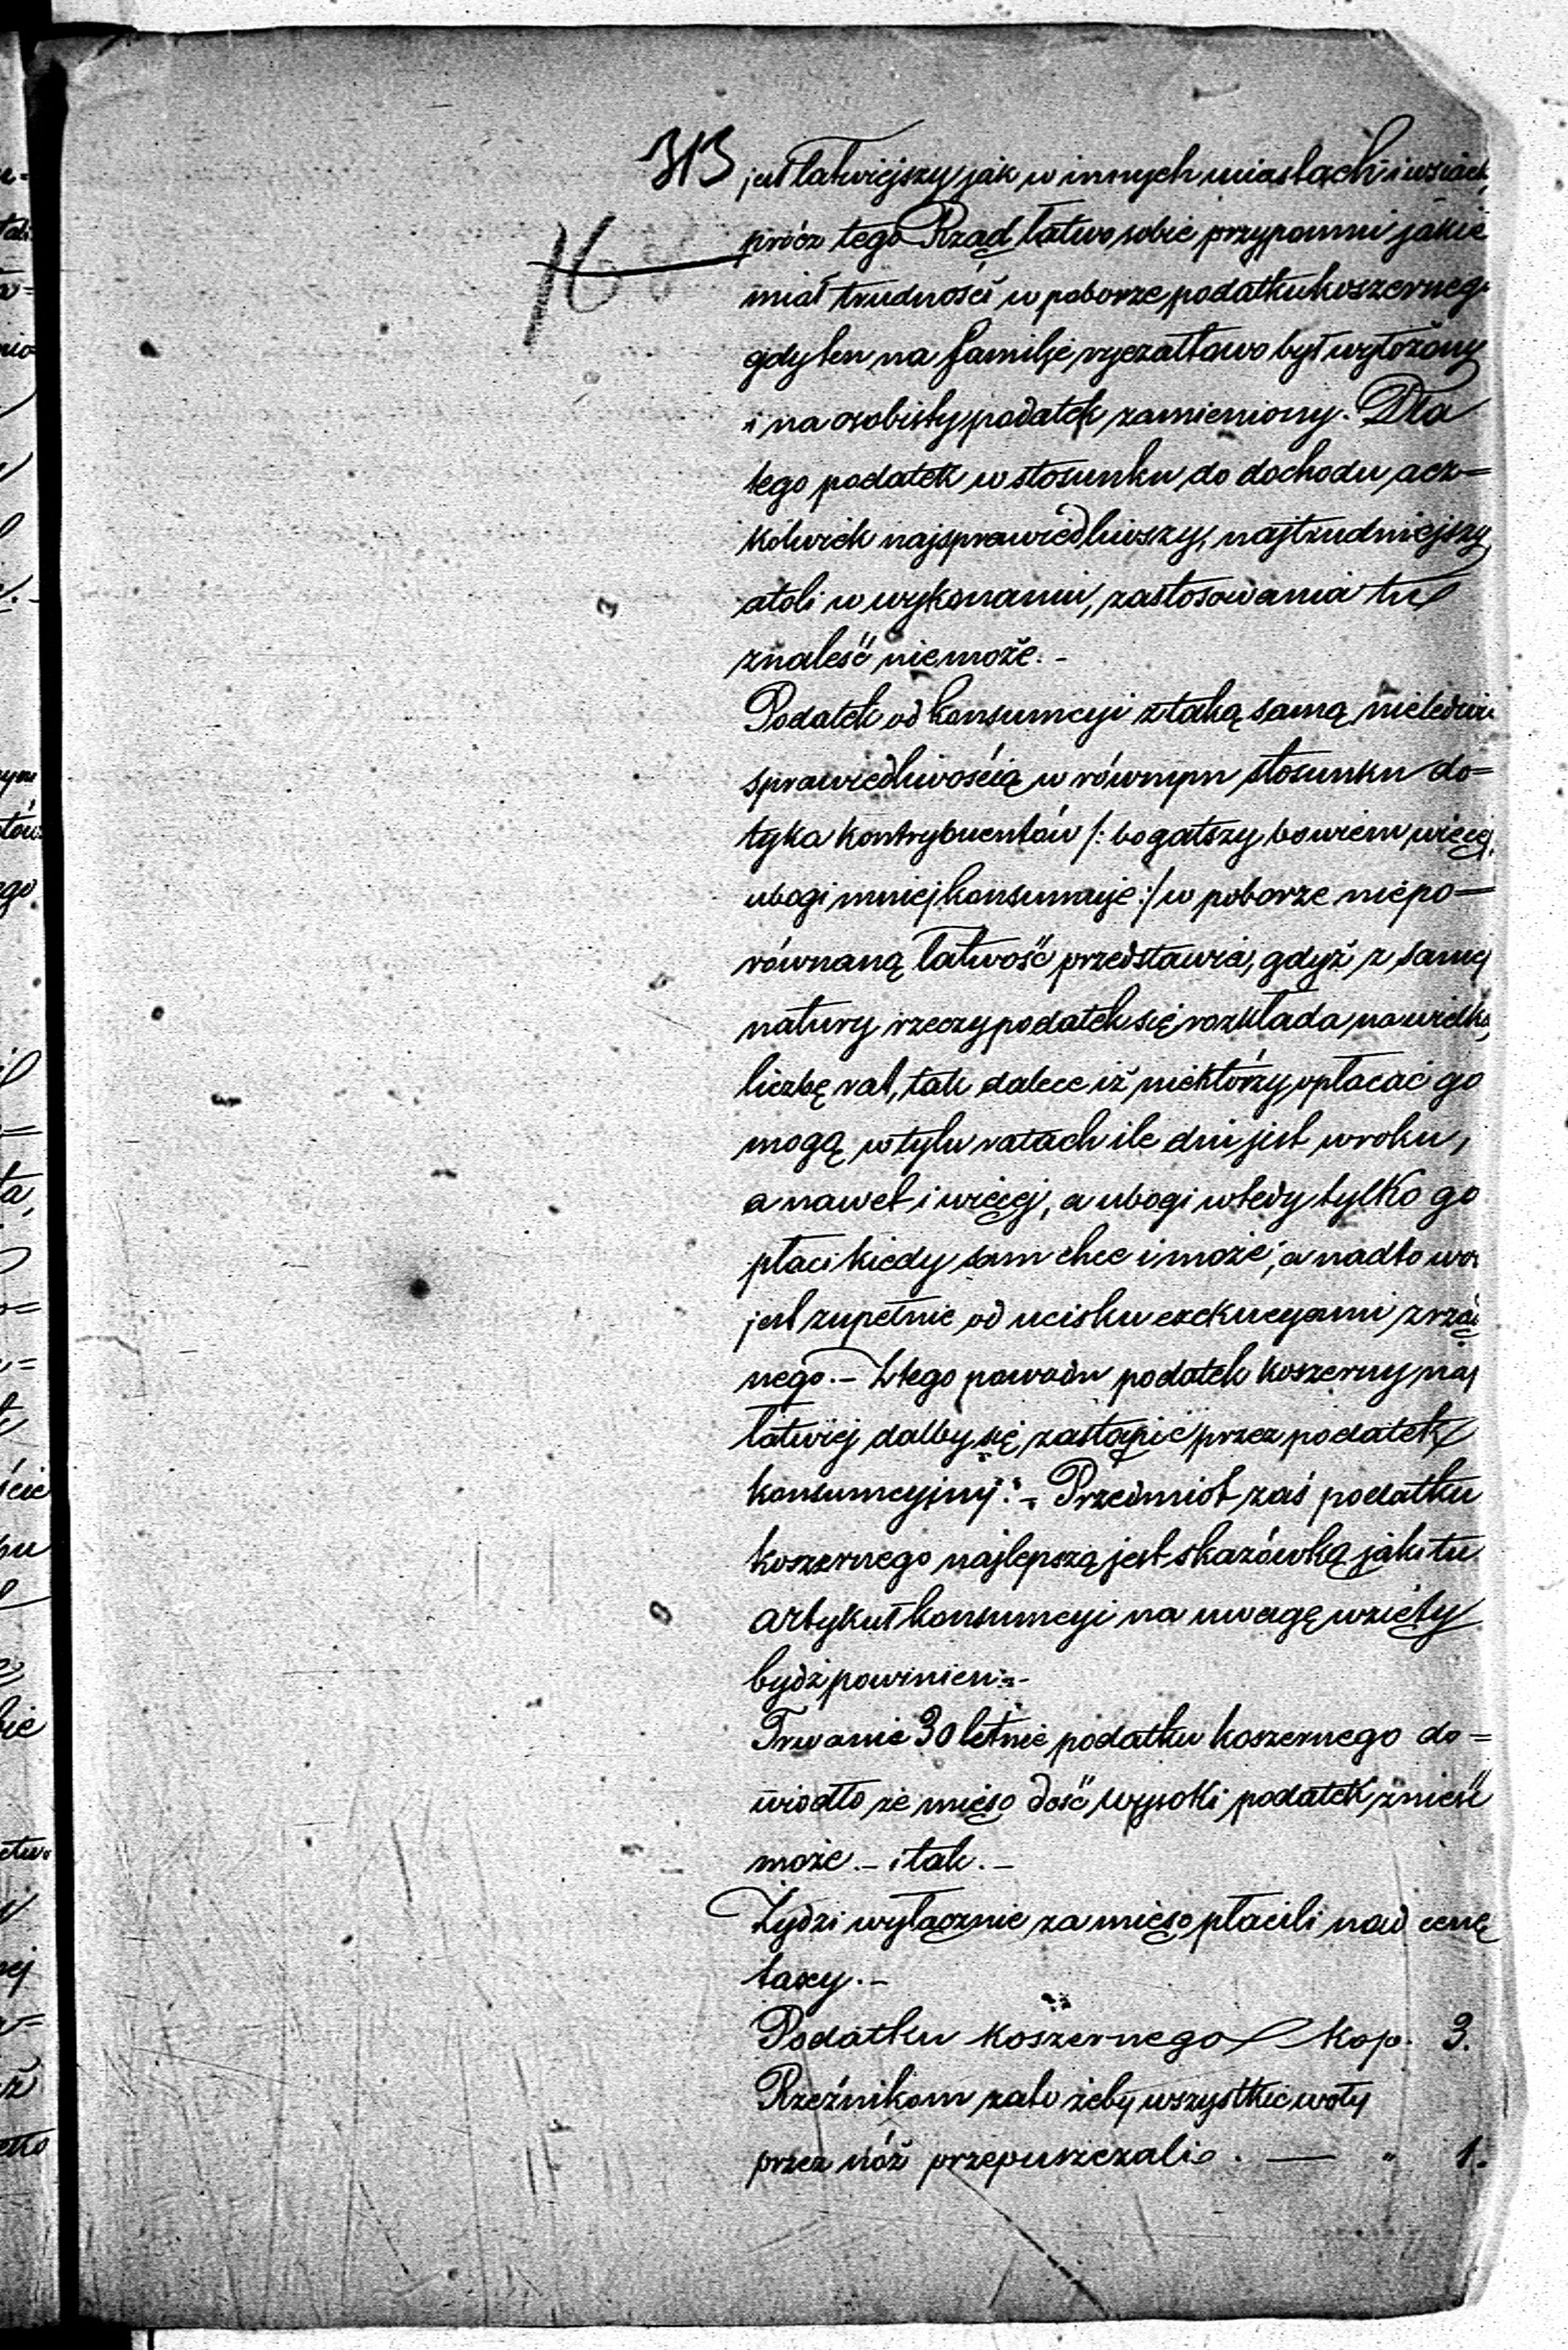 313
16
jest łatwiejszy jak w innych miastach i wsiach,
prócz tego Rząd łatwo sobie przypomni jakie
miał trudności w poborze podatku koszernego
gdy ten na familje ryczałtowo był wyłożony
i na osobisty podatek zamieniony. Dla
tego podatek w stosunku do dochodu acz=
kolwiek najsprawiedliwszy, najtrudniejszy
atoli w wykonaniu, zastosowania tu
znaleść niemoże. -
Podatek od konsumcyi z taką samą nieledwie
sprawiedliwością w równym stosunku do=
tyka kontrybuentów /: bogatszy bowiem więcej,
ubogi mniej konsumuje :/ w poborze niepo=
równaną łatwość przedstawia, gdyż z samej
natury rzeczy podatek się rozkłada na wielką
liczbę rat, tak dalece iż niektórzy opłacać go
mogą w tylu ratach ile dni jest w roku,
a nawet i więcej, a ubogi wtedy tylko go
płaci kiedy sam chce i może; a nadto wol
jest zupełnie od ucisku exekucyami zrzą
nego. - Z tego powodu podatek koszerny naj
łatwiej dałby się zastąpić przez podatek
konsumcyjny. - Przedmiot zaś podatku
koszernego najlepszą jest skazówką jaki tu
artykuł konsumcyi na uwagę wzięty
bydź powinien. -
Trwanie 30 letnie podatku koszernego do=
wiodło że mięso dość wysoki podatek znieść
może. - i tak. -
Żydzi wyłącznie za mięso płacili nad cenę
taxy. -
Podatku koszernego kop. 3.
Rzeźnikom za to żeby wszystkie woły
przez nóż przepuszczali . — " 1.